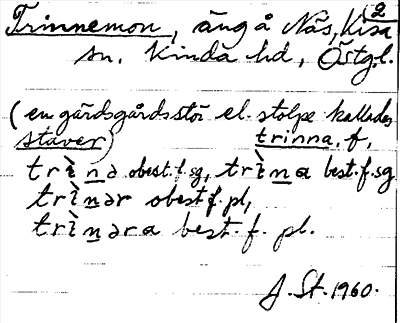 2
Trinnemon, äng å Näs, Kisa
sn. Kinda hd, Östg.l.
(en gärdsgårdsstör el. stolpe kallades
staver) trinna, f,
trìnə obest.f.sg, trìna best.f.sg
trìnər obest.f.pl,
trìnəra best.f. pl.
J. St. 1960.